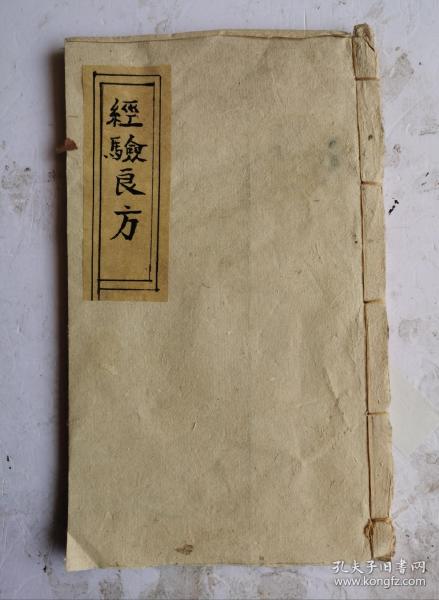 經驗良方
孔夫子旧书网
www.kongfz.com